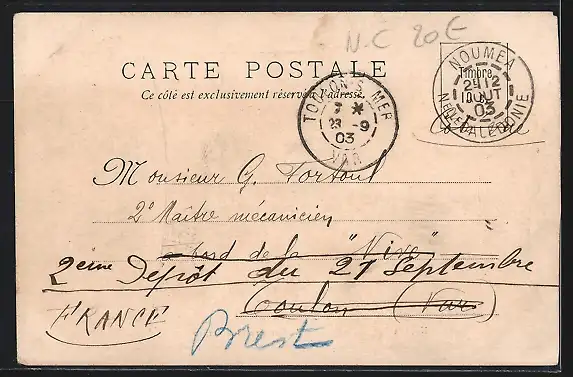 N-C 20€
CARTE POSTALE
Ce côté est exclusivement réservé à l'adresse.
TOULON-S-MER
7 *
23 -9
03
VAR
NOUMEA
Timbre
12
10 AOUT
03
NLLE CALEDONIE
Monsieur G. Tortoul
2e Maître mécanicien
bord de la "Nive"
2ème Dépôt du 21 Septembre
Toulon (Var)
FRANCE
Brest